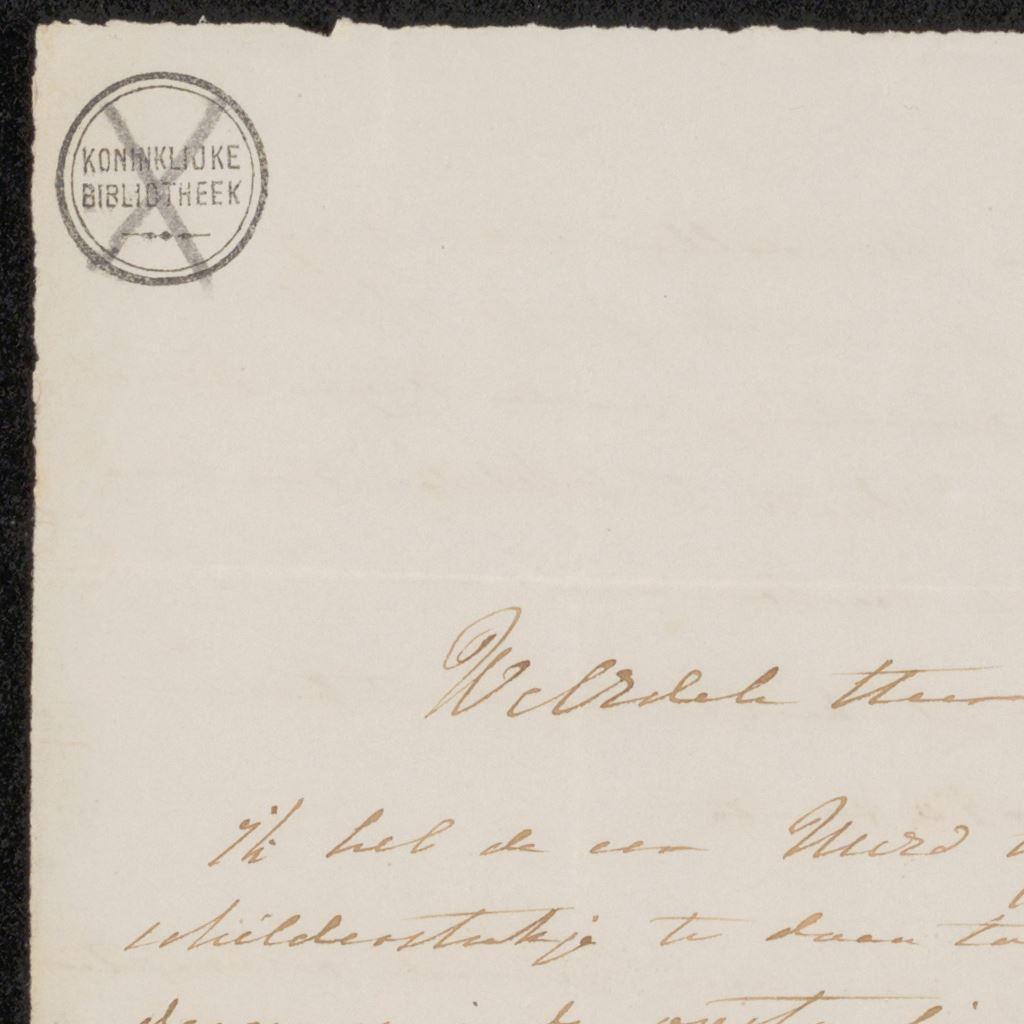 KONINKLIJKE
BIBLIOTHEEK
WelEdele Heer
Ik heb de eer UWEd
schilderstukje te doen